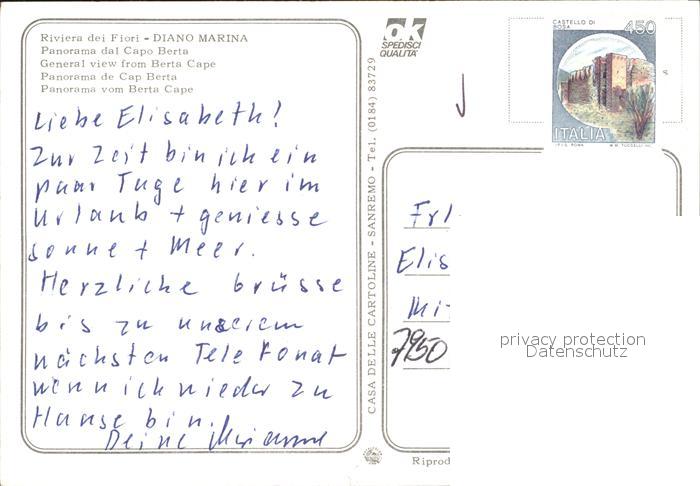 Riviera dei Fiori - DIANO MARINA
Panorama dal Capo Berta
General view from Berta Cape
Panorama de Cap Berta
Panorama vom Berta Cape
Liebe Elisabeth!
Zur Zeit bin ich ein
paar Tage hier im
Urlaub + geniesse
Sonne + Meer.
Herzliche Grüsse
bis zu unserem
nächsten Telefonat
wenn ich wieder zu
Hause bin.
Deine
CASA DELLE CARTOLINE - SANREMO - Tel. (0184) 83729
ok
SPEDISCI
QUALITA'
CASTELLO DI
BOSA
450
ITALIA
I.P.Z.S. ROMA
Frl
Elis
Mi
7950
privacy protection
Datenschutz
Riprod